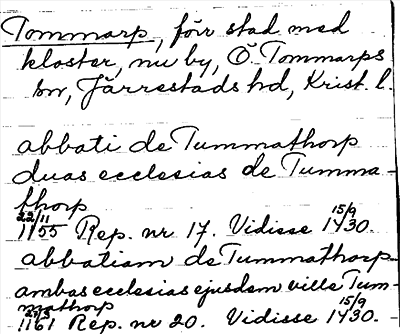 Tommarp, förr stad med
kloster, nu by, Ö. Tommarps
sn, Järrestads hd, Krist. l.
abbati de Tummathorp
duas ecclesias de Tumma-
thorp
22/11 1155 Rep. nr 17. Vidisse 15/9 1430.
abbatiam de Tummathorp
ambas ecclesias ejusdem ville Tum-
mathorp
1161 Rep. nr 20. Vidisse 15/9 1430.